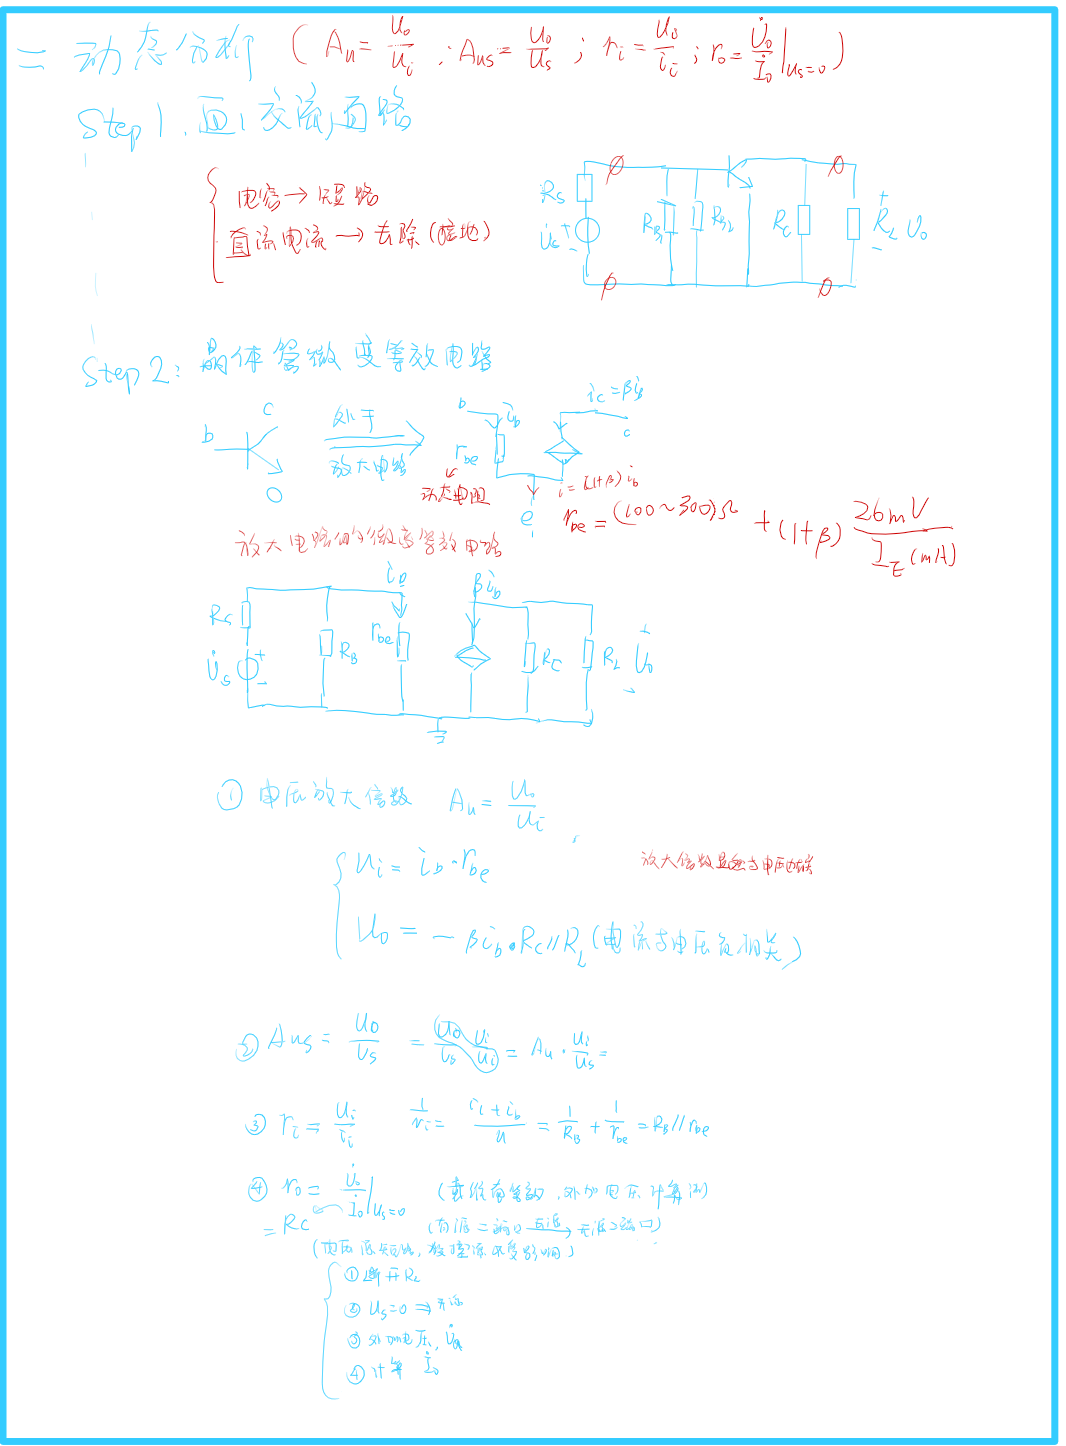 二 动态分析 (Au = Uo/Ui ; Aus = Uo/Us ; ri = Ui/ii ; ro = U̇o/İo |Us=0)
Step 1. 画交流通路
电容 → 短路
直流电流 → 去除(接地)
Rs U̇s + - RB1 RB2 RC + RL Uo -
Step 2: 晶体管微变等效电路
b c 处于 放大电路 b ib rbe 动态电阻 ic = βib c
i = (1+β) ib e
rbe = (100~300)Ω + (1+β) 26mV/IE(mA)
放大电路的微变等效电路
Rs U̇s + - RB ib rbe βib RC RL + U̇o -
① 电压放大倍数 Au = Uo/Ui
Ui = ib · rbe
放大倍数显然与电压无关
Uo = - βib · RC // RL (电流与电压负相关)
② Aus = Uo/Us = Uo/Us Ui/Ui = Au · Ui/Us =
③ ri = Ui/ii 1/ri = (ri + ib)/u = 1/RB + 1/rbe = RB // rbe
④ ro = U̇o/İo |Us=0 (戴维南等效, 外加电压计算法)
= RC (有源二端口 → 无源二端口)
(电压源短路, 受影响)
① 断开RL
② Us=0 ⇒
③ 外加电压, U̇o
④ 计算 İo